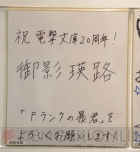 祝 電撃文庫20周年！
御影瑛路
「Fランクの暴君」を
よろしくお願いします！